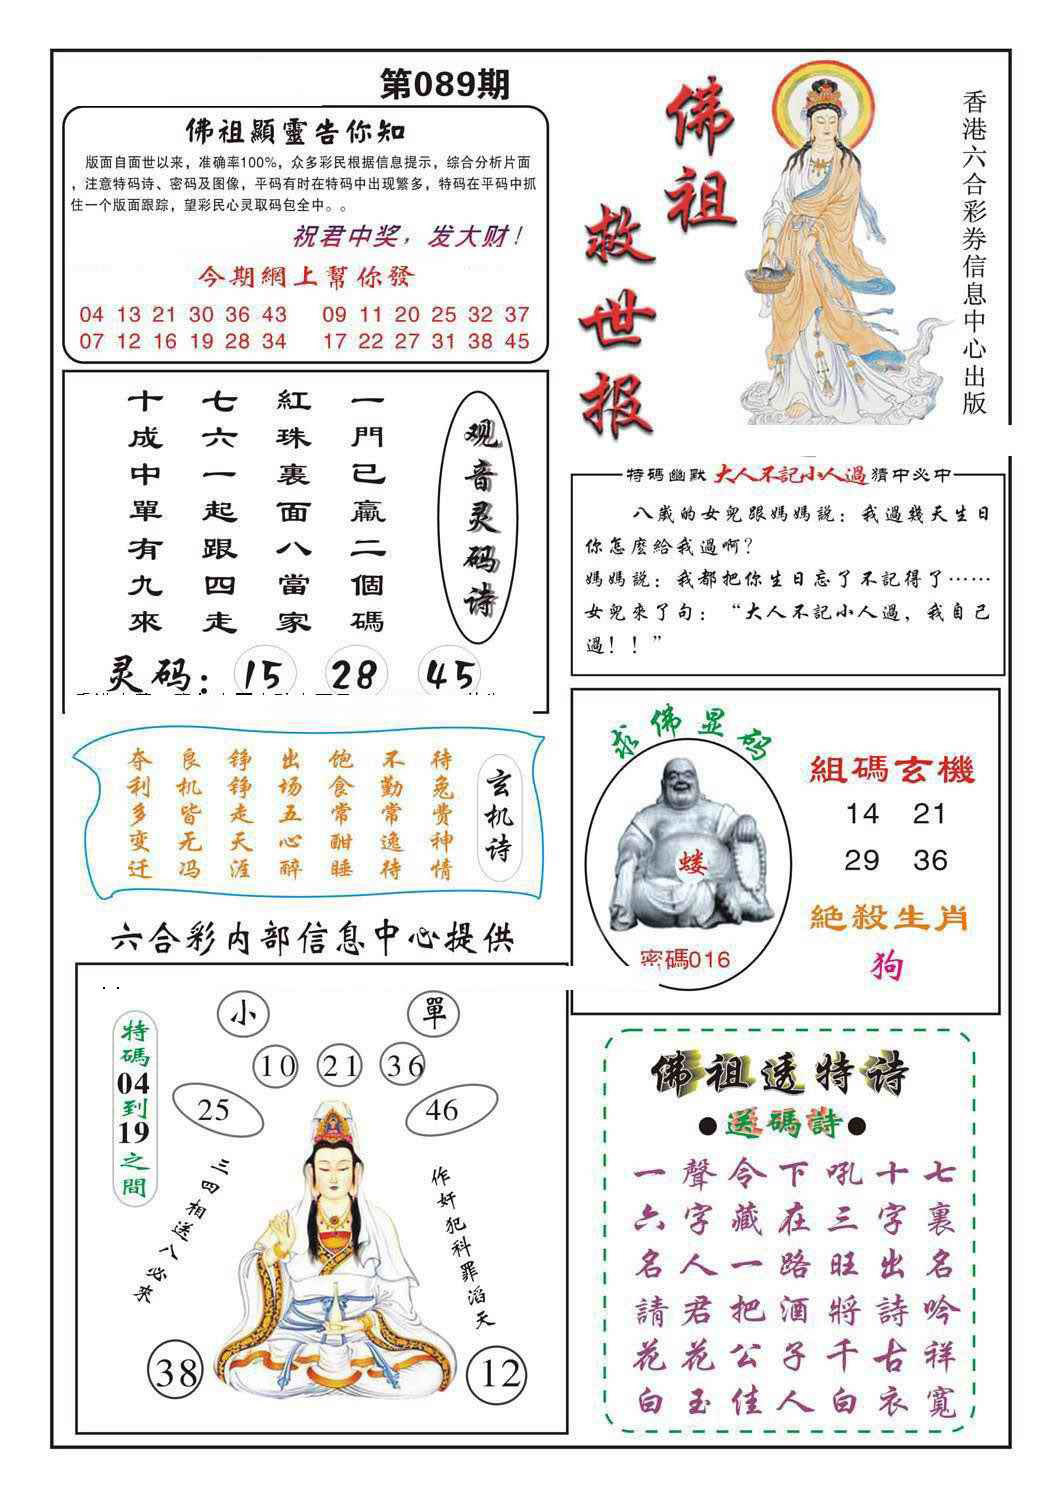 第089期
佛祖顯靈告你知
版面自面世以来，准确率100%，众多彩民根据信息提示，综合分析片面
，注意特码诗、密码及图像，平码有时在特码中出现繁多，特码在平码中抓
住一个版面跟踪，望彩民心灵取码包全中。。
祝君中奖，发大财！
今期網上幫你發
04 13 21 30 36 43 09 11 20 25 32 37
07 12 16 19 28 34 17 22 27 31 38 45
佛祖
救世报
香港六合彩券信息中心出版
观音灵码诗
一門已贏二個碼
紅珠裏面八當家
七六一起跟四走
十成中單有九來
灵码：15 28 45
特码幽默 大人不記小人過 猜中必中
八歲的女兒跟媽媽説：我過幾天生日
你怎麼給我過啊？
媽媽説：我都把你生日忘了不記得了……
女兒來了句：“大人不記小人過，我自己
過！！”
玄机诗
待兔费神情
不勤常逸待
饱食常酣睡
出场五心醉
铮铮走天涯
良机皆无冯
夺利多变迁
求佛显码
蝼
密碼016
組碼玄機
14 21
29 36
絶殺生肖
狗
六合彩内部信息中心提供
特碼04到19之間
小 單
10 21 36
25 46
三四相送八必來
作奸犯科罪滔天
38 12
佛祖透特诗
●送碼詩●
一聲令下吼十七
六字藏在三字裏
名人一路旺出名
請君把酒將詩吟
花花公子千古祥
白玉佳人白衣寬